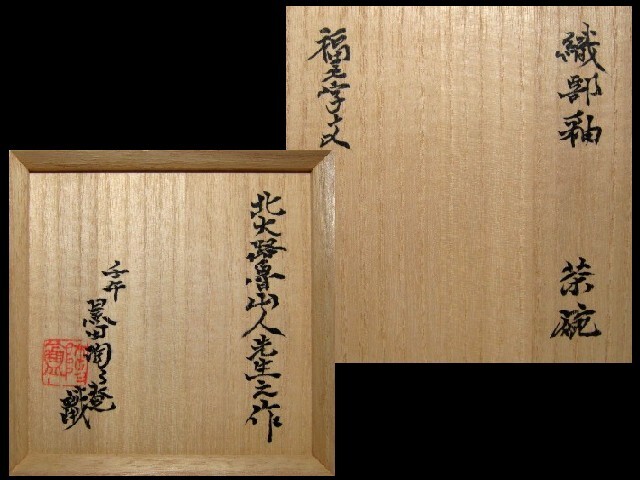 織部釉 茶碗
福之字文
北大路魯山人先生之作
壬午 黒田陶々菴 識